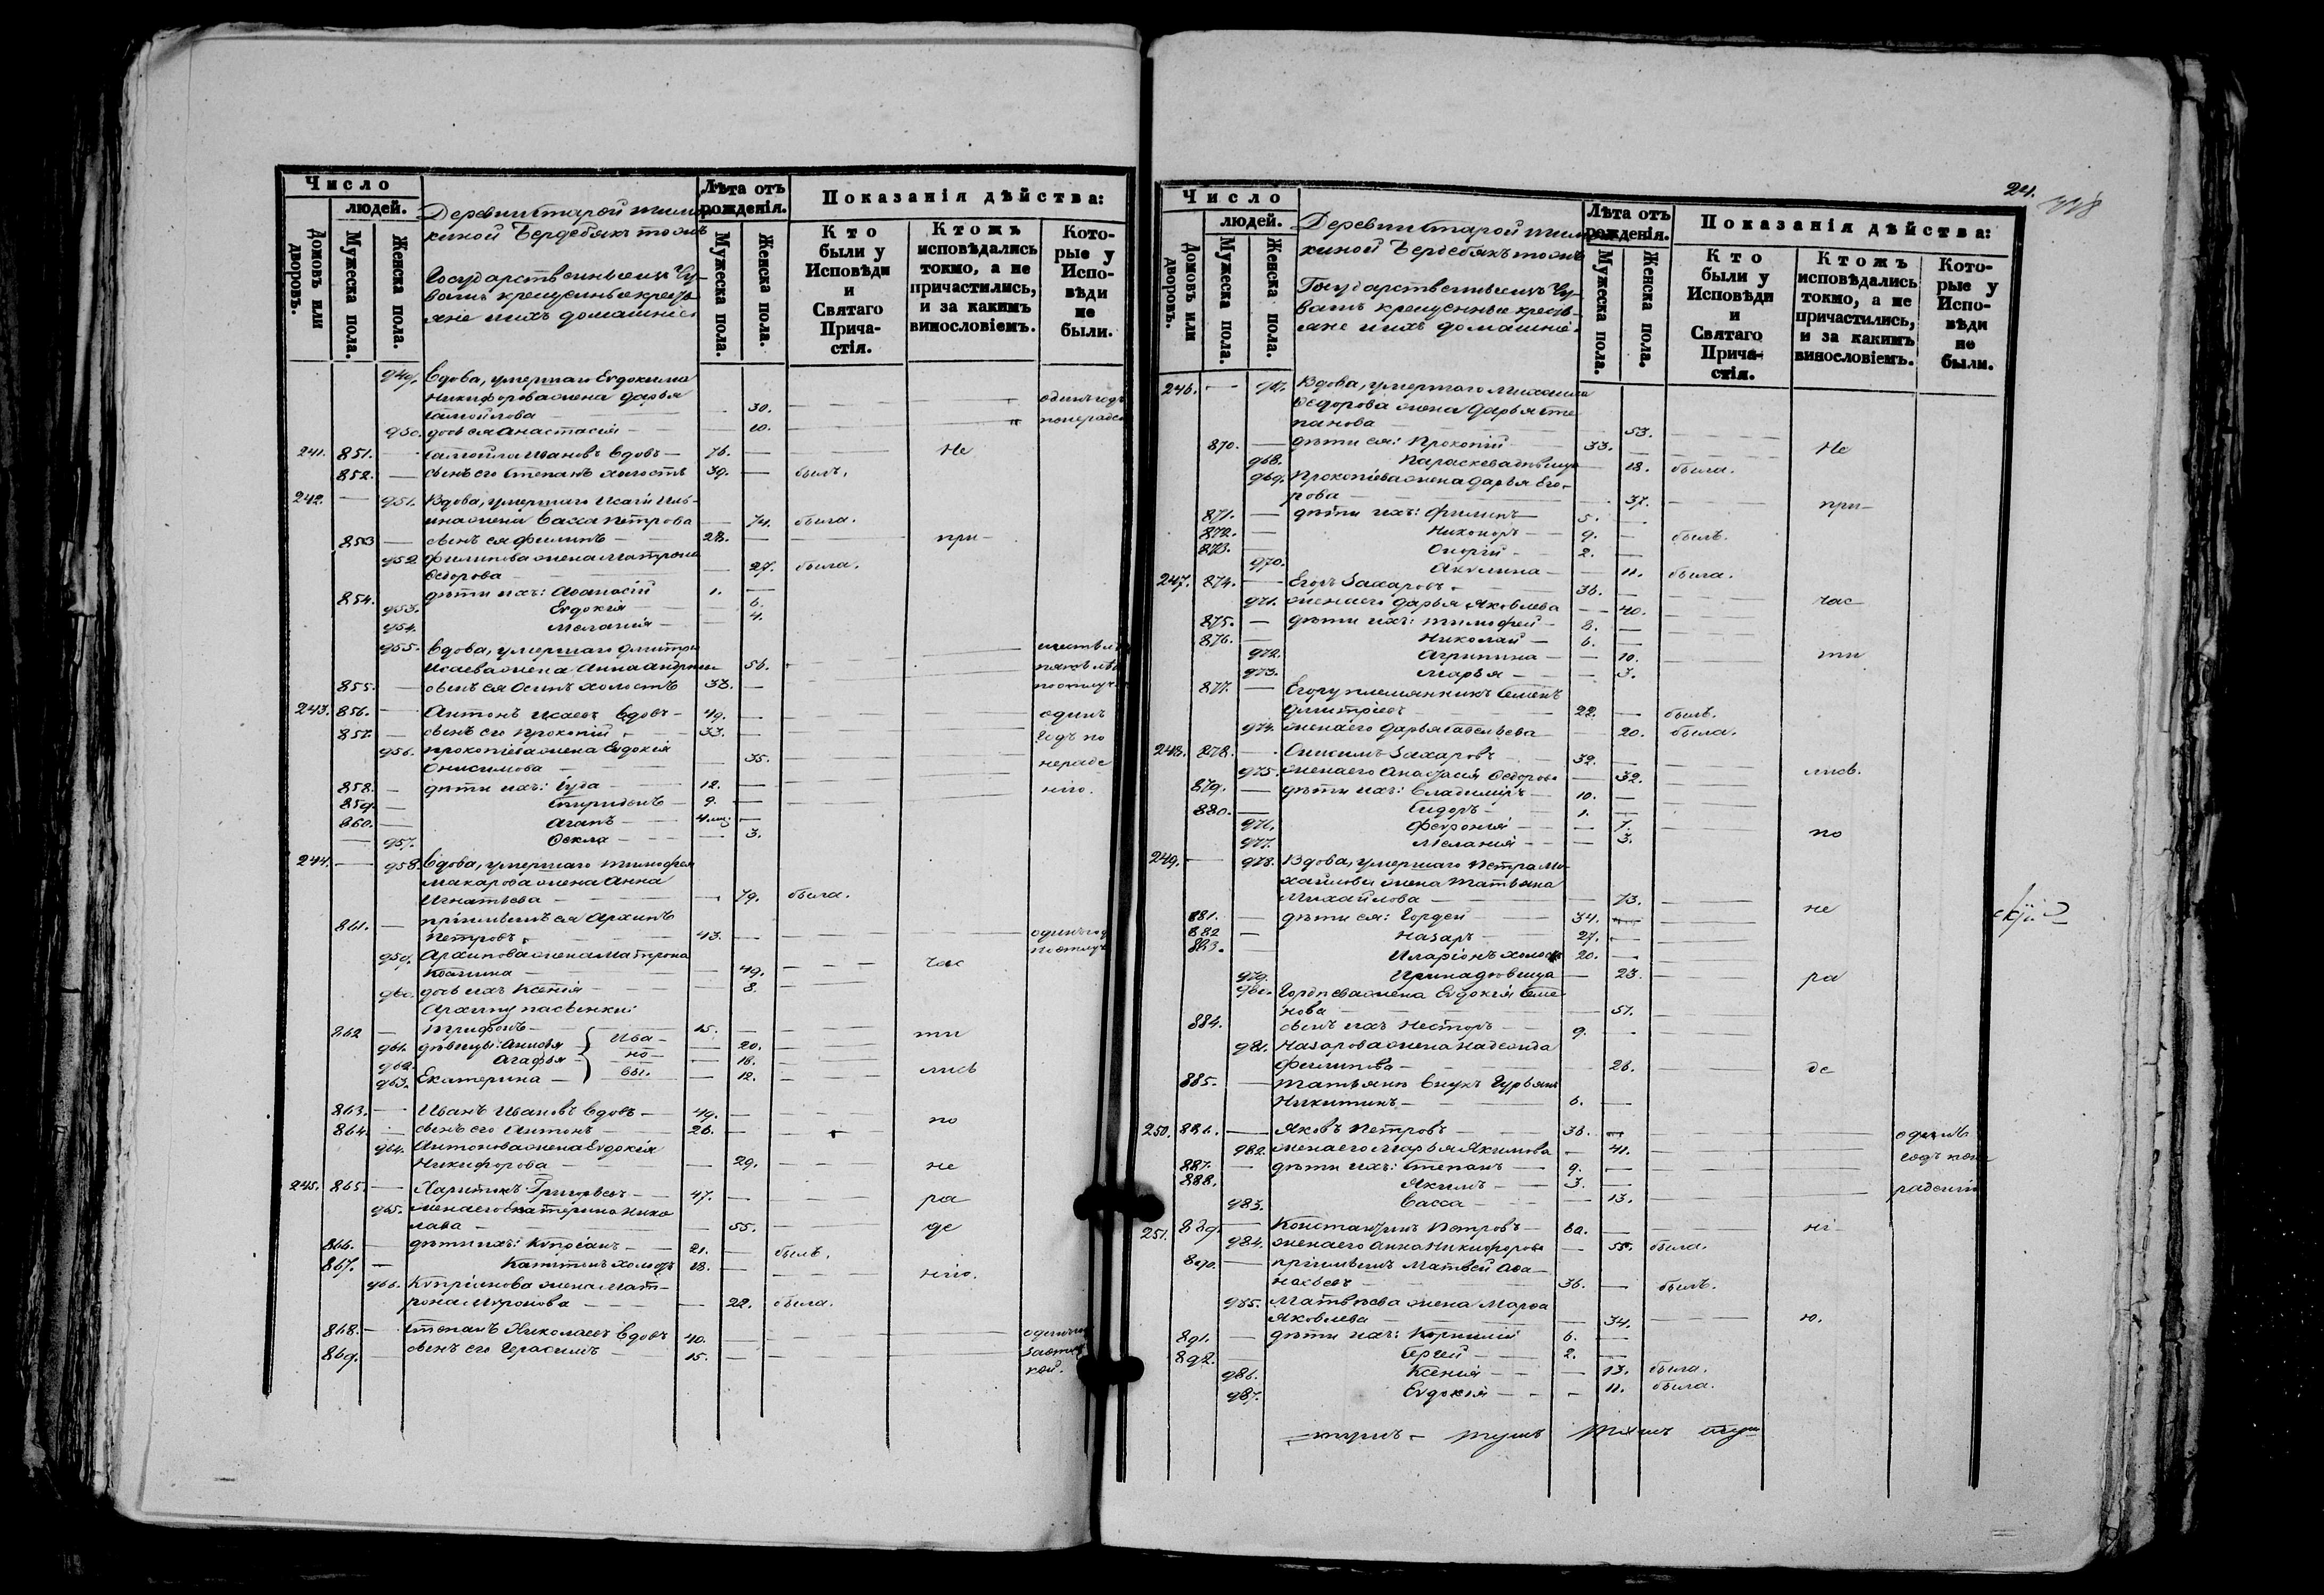 Число
людей.
Домовъ или дворовъ.
Мужеска пола.
Женска пола.
Деревни Старой Тимош-
киной Бердебякъ тожъ
Государственные изъ Чу-
вашъ крещеные кресть-
яне и ихъ домашніе
Лѣта отъ рожденія.
Мужеска пола.
Женска пола.
Показанія дѣйства:
Кто были у Исповѣди и Святаго Прича-стія.
Ктожъ исповѣдались токмо, а не причастились, и за какимъ винословіемъ.
Кото-рые у Испо-вѣди не были.
949. Вдова, умершаго Евдокима
Никифорова жена Дарья
Самойлова — 30. одинъ годъ
950. дочь ея Анастасія — 10.
241. 851. Самойла Ивановъ вдовъ — 76. — Не
852. — сынъ его Степанъ холостъ 39. — былъ.
242. — 951. Вдова, умершаго Исаіи Иль-
ина жена Васса Петрова — 74. была.
853 — сынъ ея Филипъ — 28. — при-
952. Филипова жена Матрона
Ѳедорова — 27. была.
854. дѣти ихъ: Аѳанасій 1. —
953. Евдокія — 6.
954. Меланія — 4.
955. Вдова, умершаго Дмитрія
Исаева жена Анна Андреи 56.
855. — сынъ ея Осипъ холостъ 33. —
243. 856. — Антонъ Исаевъ вдовъ — 49. — одинъ
857. — сынъ его Прокопій — 33. — годъ по
956. Прокопіева жена Евдокія
Онисимова — 35. нераде
858. — дѣти ихъ: Іуда — 12. — нію.
859. — Спиридонъ — 9. —
860. — Агапъ — 4 мц. —
957. Ѳекла — 3.
244. — 958. Вдова, умершаго Тимофея
Макарова жена Анна
Игнатьева — 79. была.
861. — пріимышъ ея Архипъ
Петровъ. 43. — одинъ год
959. Архипова жена Матрона
— 49. час
960. дочь ихъ Ксенія — 8.
Архипу пасынки:
862 — Трифонъ — 15. — ти
961. дѣвицы: Анисья Ива- — 20.
962. Агафья но- — 18.
963. Екатерина — вы. — 12. лись
863. — Иванъ Ивановъ вдовъ — 49. — по
864. — сынъ его Антонъ — 26. —
964. Антонова жена Евдокія
Никифорова — 29. не
245. 865. — Харитонъ Григорьевъ — 47. — ра
965. жена его Екатерина Нико
лаева — 55. де
866. — дѣти ихъ: Кѵпріанъ — 21. — былъ.
867. — Капитонъ холостъ 18. — нію.
966. Кѵпріянова жена Мат-
рона Миронова — 22. была.
868. — Степанъ Николаевъ вдовъ 40.
869. сынъ его Герасимъ — 15.
24.
Число
людей.
Домовъ или дворовъ.
Мужеска пола.
Женска пола.
Деревни Старой Тимош-
киной Бердебякъ тожъ
Государственные изъ Чу-
вашъ крещенные кресть-
яне и ихъ домашніе.
Лѣта отъ рожденія.
Мужеска пола.
Женска пола.
Показанія дѣйства:
Кто были у Исповѣди и Святаго Прича-стія.
Ктожъ исповѣдались токмо, а не причастились, и за какимъ винословіемъ.
Кото-рые у Испо-вѣди не были.
246. — 967. Вдова, умершаго Михаила
Ѳедорова жена Дарья Сте
панова — 53.
870. — дѣти ея: Прокопій 33. — Не
968. Параскева дѣвица — 18. была.
969. Прокопіева жена Дарья Его-
рова — 37. при-
871. — дѣти ихъ: Филипъ 5. —
872. — Никоноръ — 9. — былъ.
873. — 2. —
970. Акулина — 11. была.
247. 874. — Егоръ Захаровъ. 36. —
971. жена его Дарья Яковлева — 40. час
875. — дѣти ихъ: Тимофей — 8. —
876. — Николай — 6. —
972. Агрипина — 10. ти
973. Марья — 3.
877. — Егору племянникъ Семенъ
Дмитріевъ 22. — былъ.
974. жена его Дарья Савельева — 20. была.
248. 878. — Онисимъ Захаровъ — 32. —
975. жена его Анастасія Ѳедорова — 32. лись.
879. — дѣти ихъ: Владиміръ — 10. —
880. — Сидоръ — 1. —
976. Февронія — 7.
977. Меланія — 3. по
249. — 978. Вдова, умершаго Петра Ми-
хайлова жена Татьяна
Михайлова — 73.
881. — дѣти ея: Гордей — 34. не
882 — Назаръ — 27. —
883. Иларіонъ холостъ 20. —
979. Ирина дѣвица — 23. ра
980. Гордѣева жена Евдокія Семе-
нова — 51.
884. сынъ ихъ Несторъ — 9. —
981. Назарова жена Надежда
Филипова — 26. де
885. — Татьянѣ внукъ Гурьянъ
Никитинъ — 6. —
250. 886. — Яковъ Петровъ — 36. — одинъ
982. жена его Марья Якимова — 41. годъ
887. — дѣти ихъ: Степанъ — 9. —
888. Якимъ — 3. — радѣнію
983. Васса — 13.
251. 889 — Константинъ Петровъ — 60. — ні
984. жена его Анна Никифорова — 55. была.
890. — пріимышъ Матвей Аѳа-
насьевъ 36. — былъ.
985. Матвѣева жена Марѳа
Яковлева — 34. ю.
891. — дѣти ихъ: Корнилій 6. —
892. Сергей — 2. —
986. Ксенія — 13. была.
987. Евдокія — 11. была.